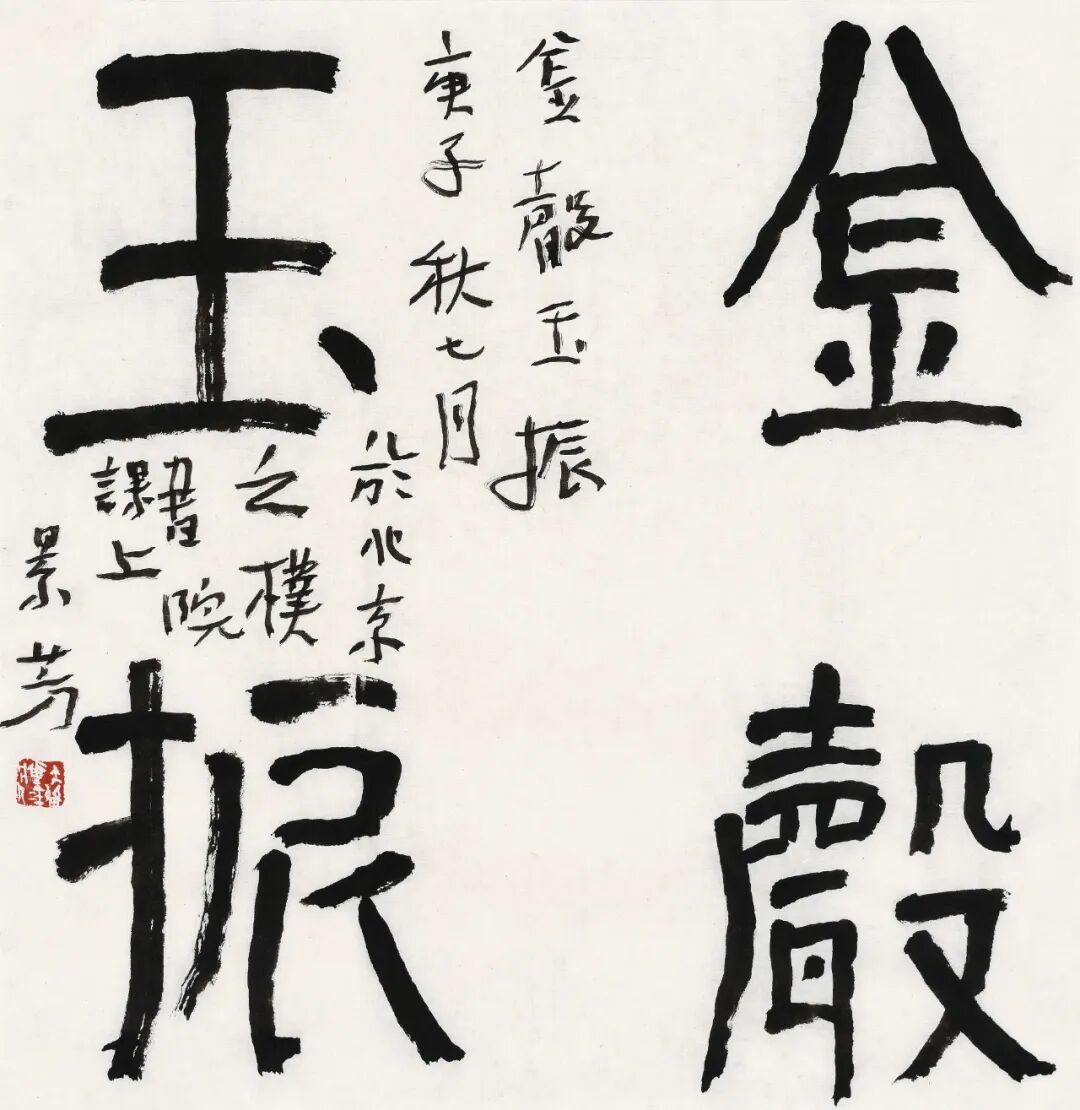 金聲
玉振
金聲玉振
庚子秋七月
於北京
之樸
書院
課上
景芳